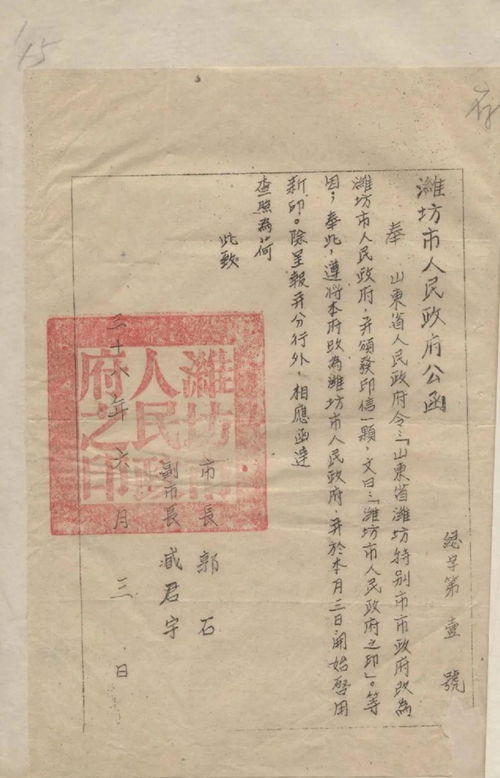 15
存
濰坊市人民政府公函
總字第壹號
奉 山東省人民政府令:「山東省濰坊特别市市政府改為
濰坊市人民政府,并頒發印信一顆,文曰:「濰坊市人民政府之印」。等
因;奉此,遵將本府改為濰坊市人民政府,并於本月三日開始啓用
新印。除呈報并分行外,相應函達
查照為荷
此致
市長 郭石
副市長 臧君宇
三十八年六月三日
濰坊市人民政府之印